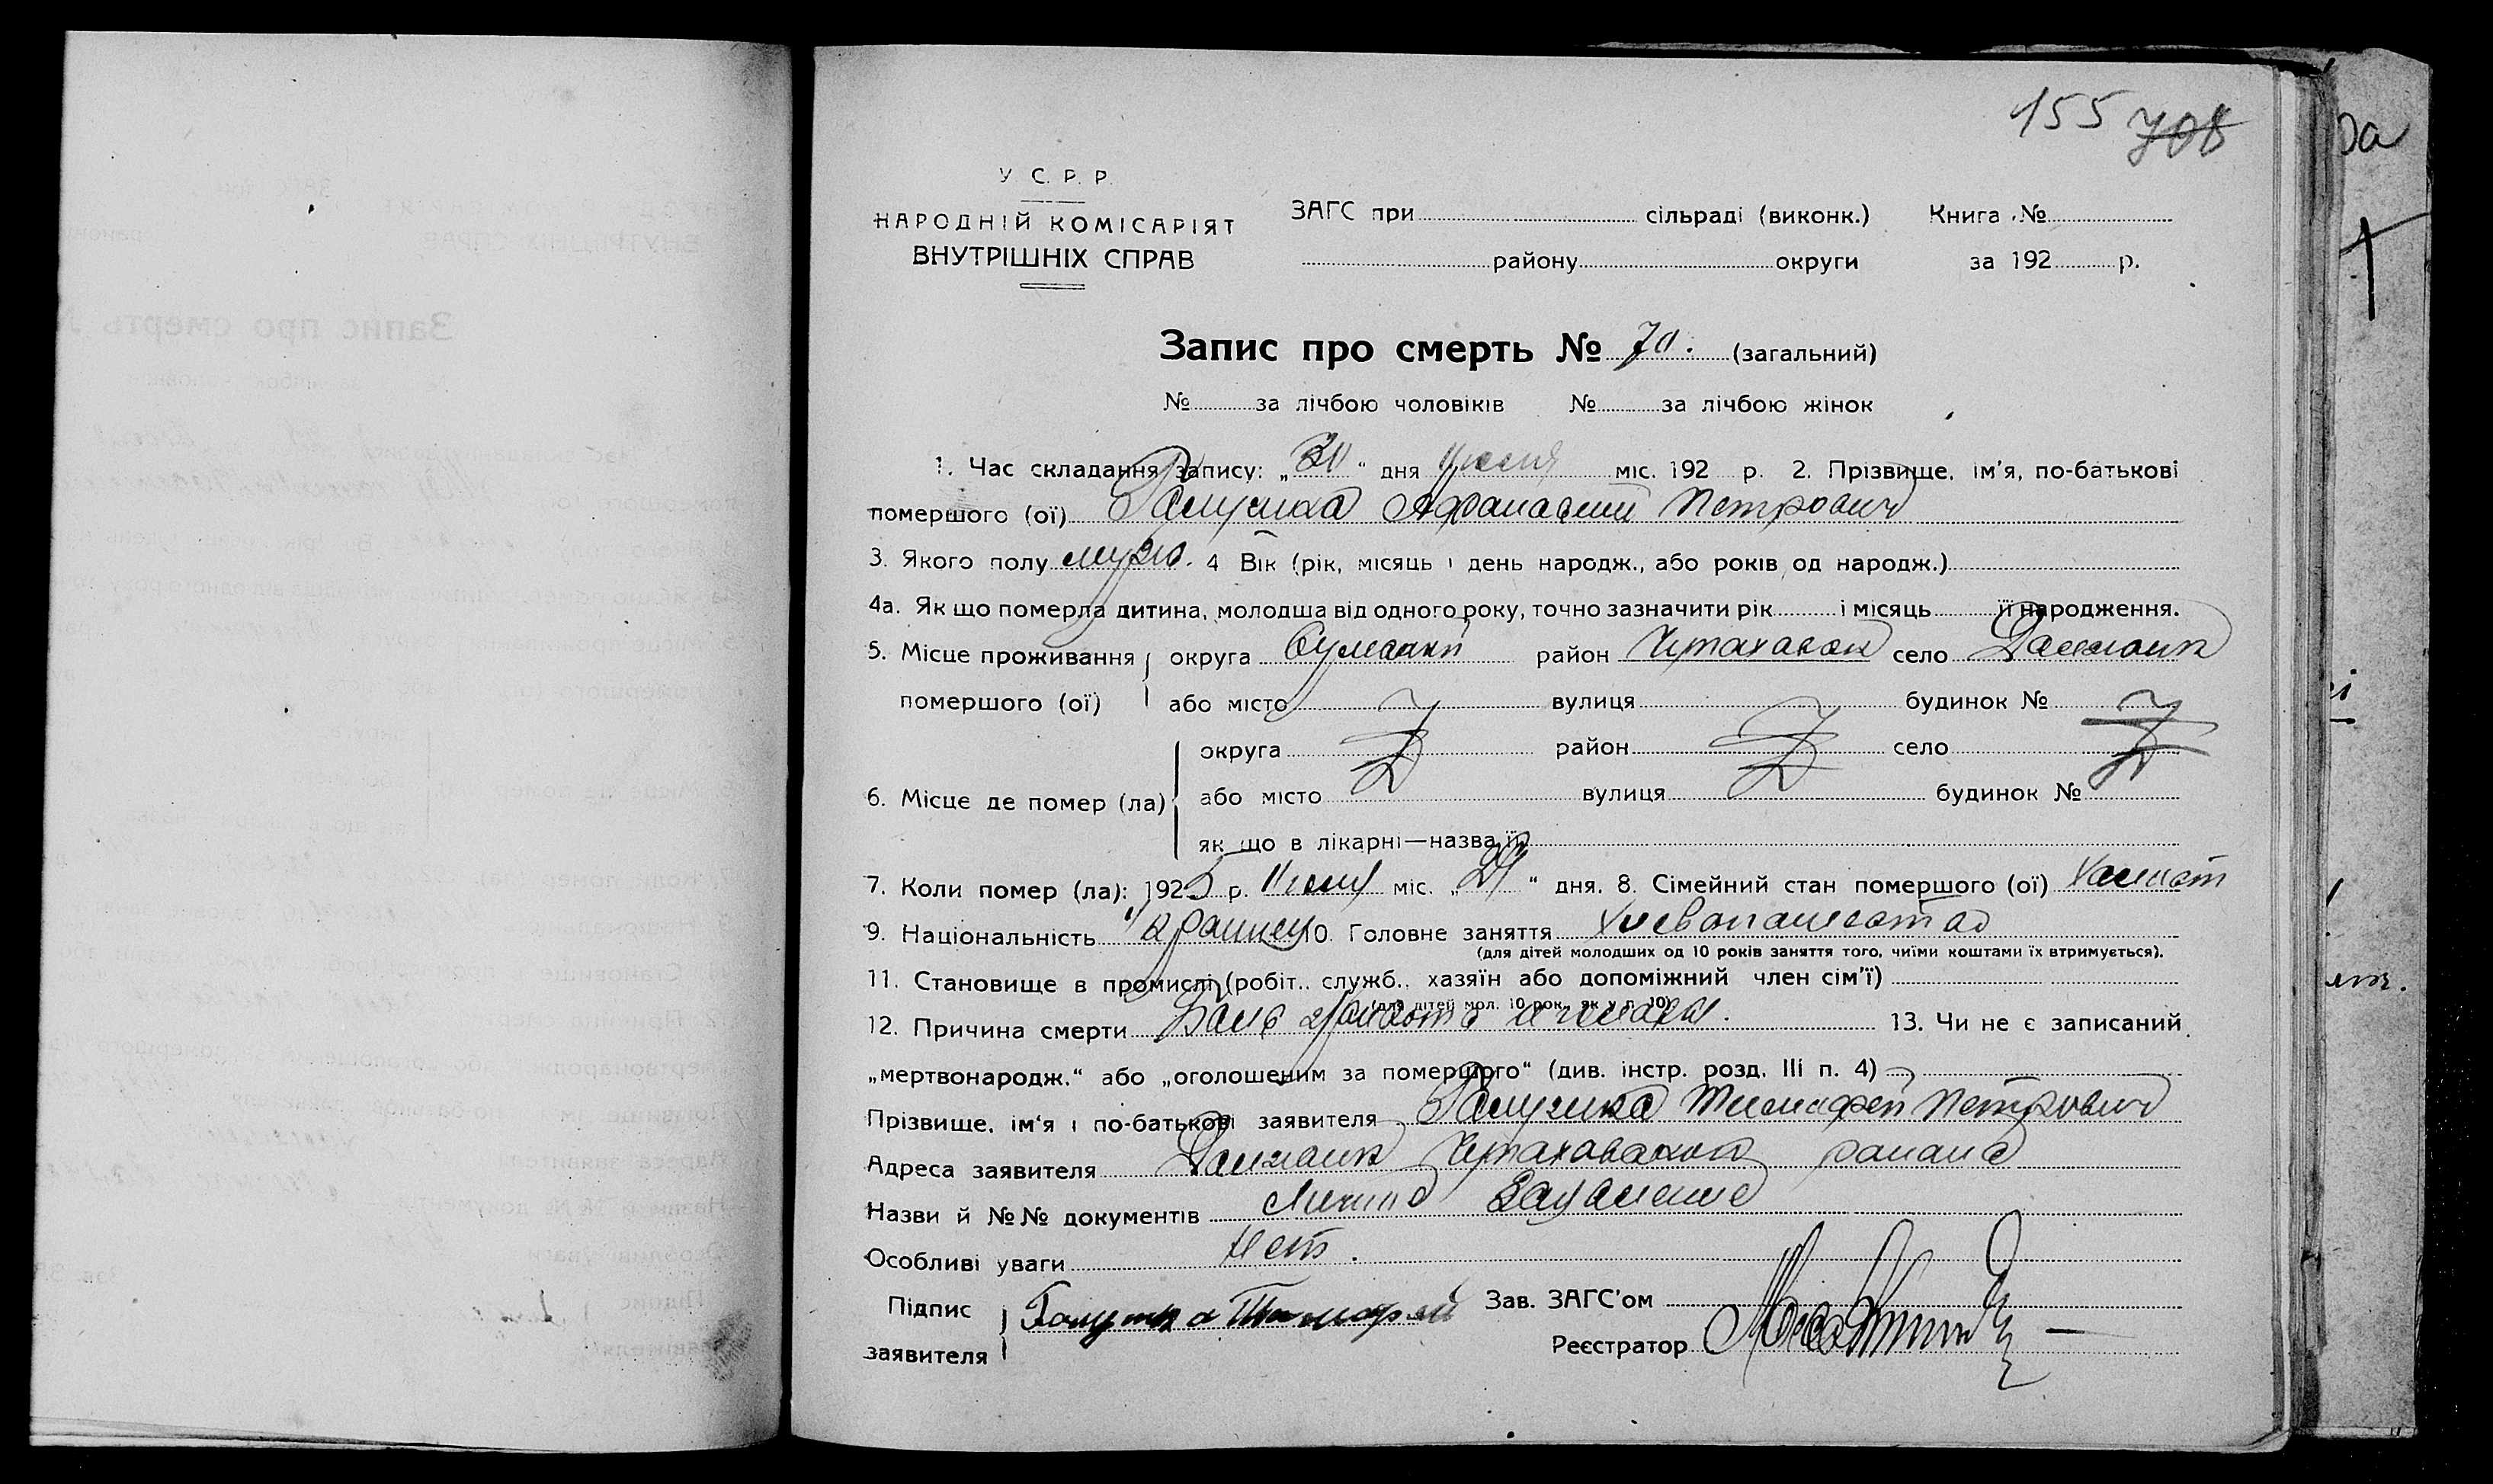 155 708
У С. Р. Р.
НАРОДНІЙ КОМІСАРІЯТ
ВНУТРІШНІХ СПРАВ
ЗАГС при сільраді (виконк.) Книга №
району округи за 192 р.
Запис про смерть № 70. (загальний)
№ за лічбою чоловіків № за лічбою жінок
1. Час складання запису: „30“ дня міс. 192 р. 2. Прізвище, ім'я, по-батькові
помершого (ої) Афанасий Петрович
3. Якого полу муж. 4 Вік (рік, місяць і день народж., або років од народж.)
4а. Як що померла дитина, молодша від одного року, точно зазначити рік і місяць її народження.
5. Місце проживання округа Сумский район село
помершого (ої) або місто вулиця будинок №
округа район село
6. Місце де помер (ла) або місто вулиця будинок №
як що в лікарні—назва її
7. Коли помер (ла): 1925 р. міс. „29“ дня. 8. Сімейний стан помершого (ої) Холост
9. Національність 10. Головне заняття
(для дітей молодших од 10 років заняття того, чиїми коштами їх втримується).
11. Становище в промислі (робіт.. служб.. хазяїн або допоміжний член сім'ї)
(для дітей мол. 10 рок. як у п. 10)
12. Причина смерти 13. Чи не є записаний
„мертвонародж.“ або „оголошеним за помершого“ (див. інстр. розд. III п. 4)
Прізвище, ім'я і по-батькові заявителя Тимофей Петрович
Адреса заявителя района
Назви й №№ документів Лично
Особливі уваги Нет.
Підпис Тимофей Зав. ЗАГС'ом
заявителя Реєстратор